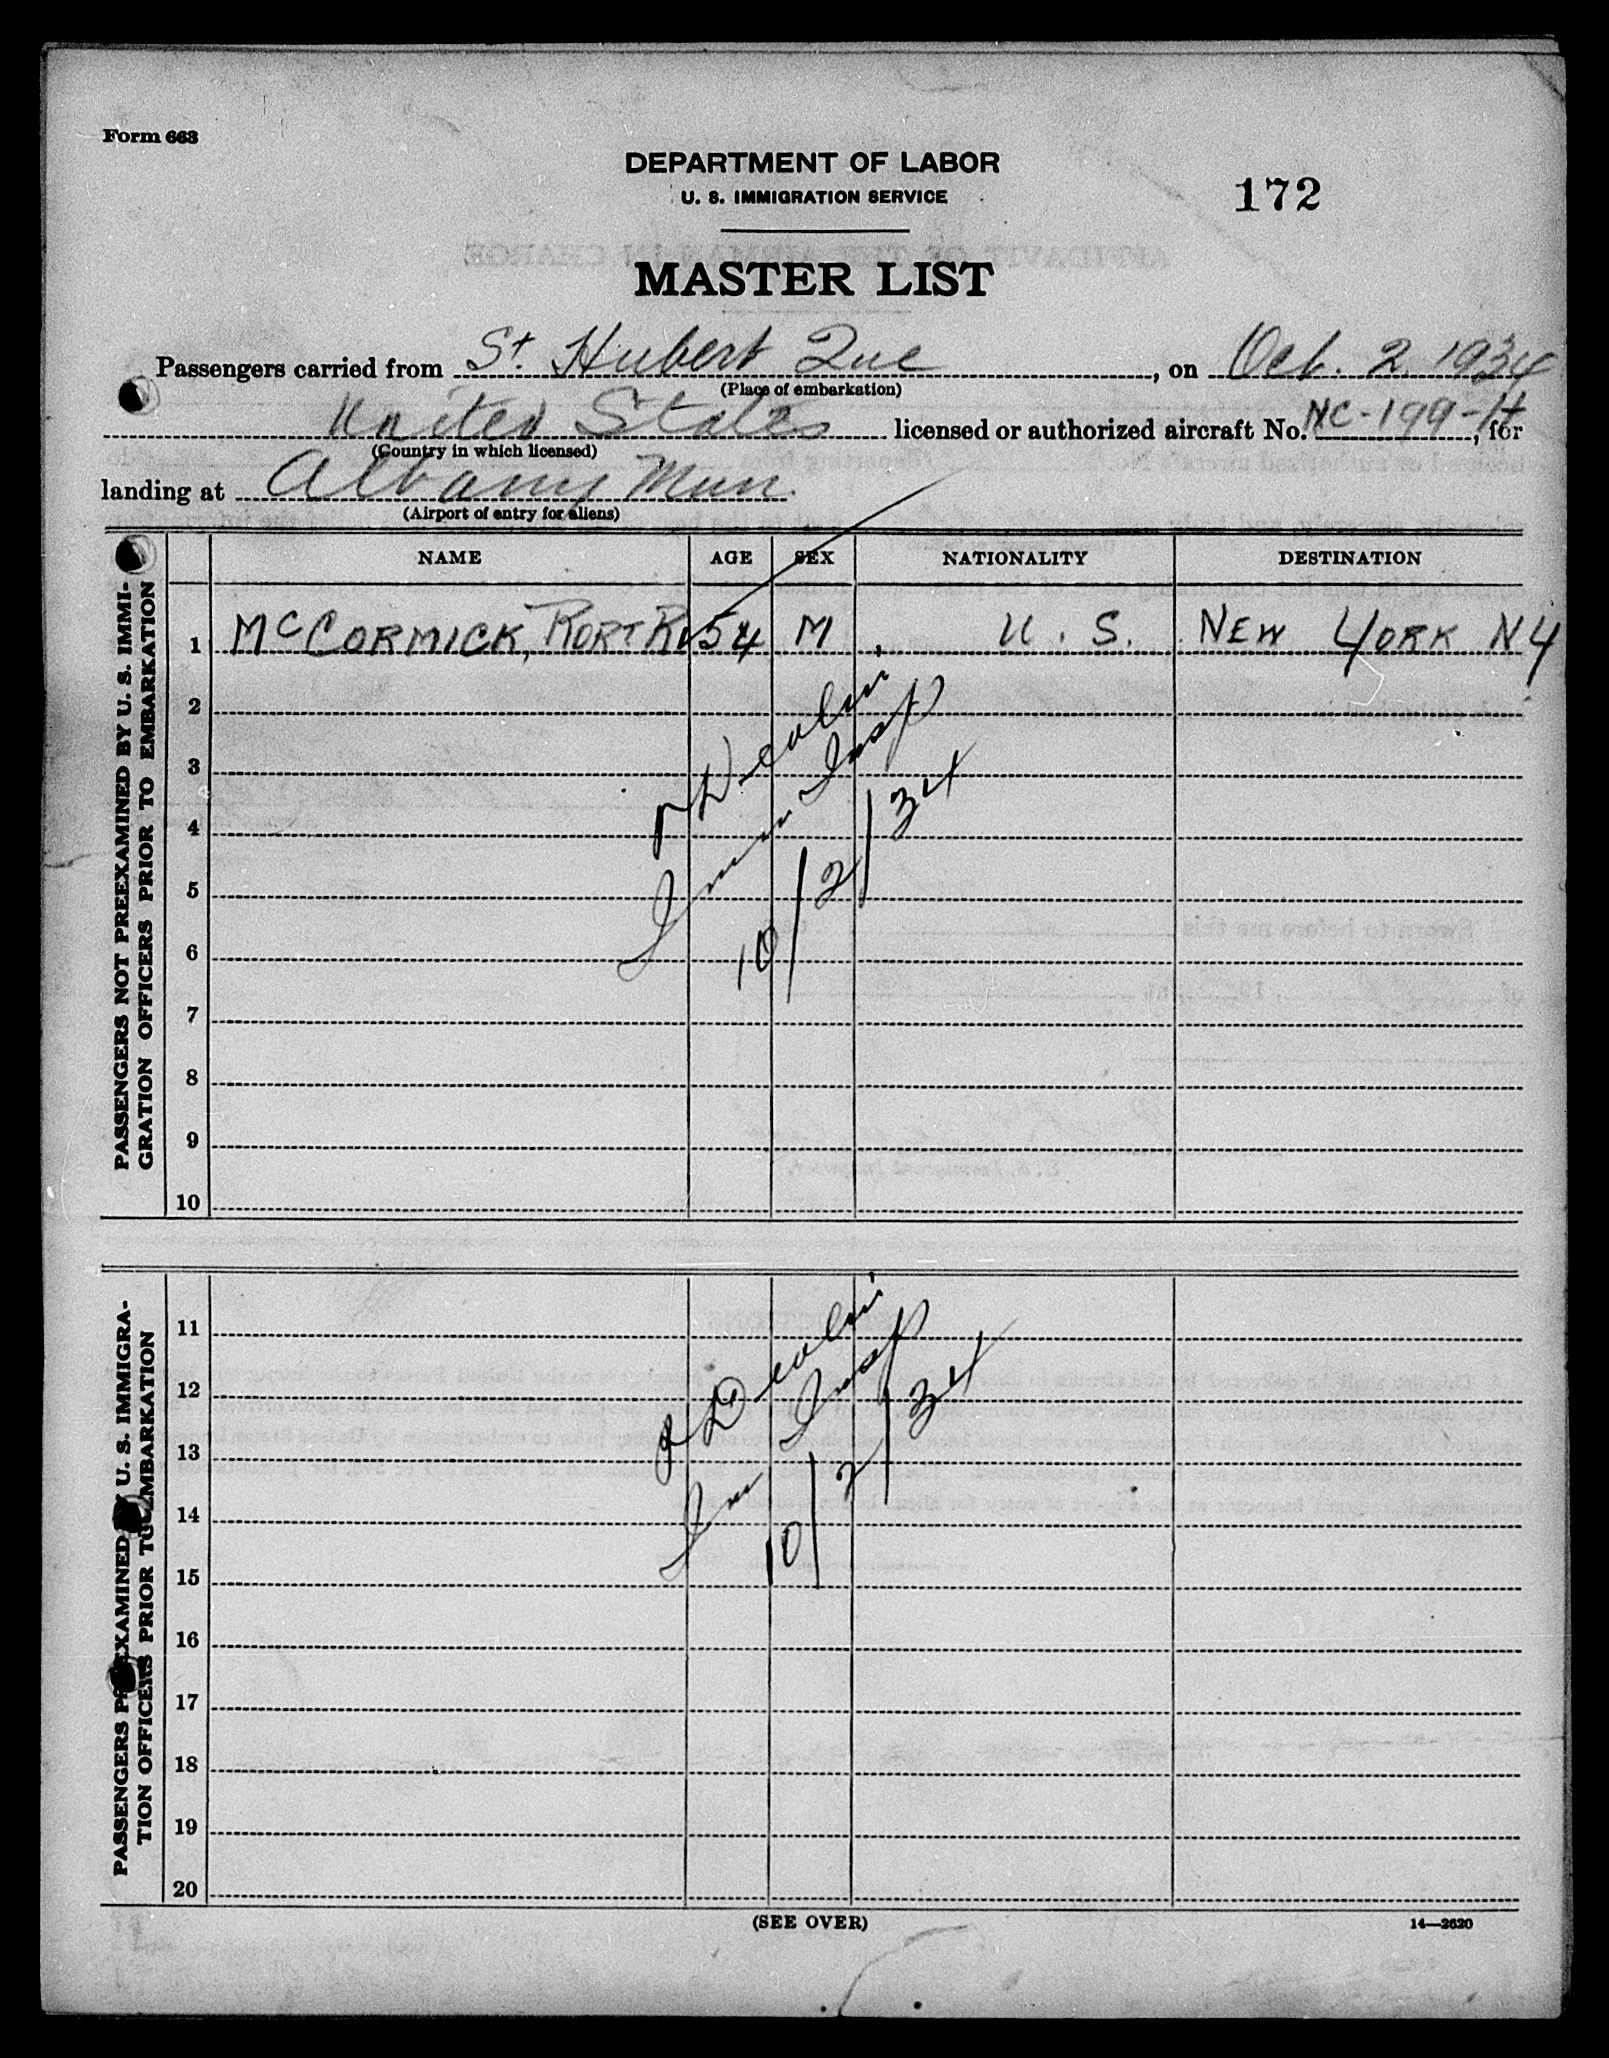 Form 663
DEPARTMENT OF LABOR
U. S. IMMIGRATION SERVICE
172
MASTER LIST
Passengers carried from St. Hubert Que, on Oct. 2, 1934
(Place of embarkation)
United States licensed or authorized aircraft No. NC-199-H, for
(Country in which licensed)
landing at Albany Mun.
(Airport of entry for aliens)
NAME AGE SEX NATIONALITY DESTINATION
PASSENGERS NOT PREEXAMINED BY U. S. IMMI-
GRATION OFFICERS PRIOR TO EMBARKATION
1 McCORMICK, ROBT R. 54 M U. S. NEW YORK NY
2
3
4
5
6
7
8
9
10
Devlin
Imm Insp
10/2/34
PASSENGERS PREEXAMINED BY U. S. IMMIGRA-
TION OFFICERS PRIOR TO EMBARKATION
11
12
13
14
15
16
17
18
19
20
Devlin
Imm Insp
10/2/34
(SEE OVER)
14—2620